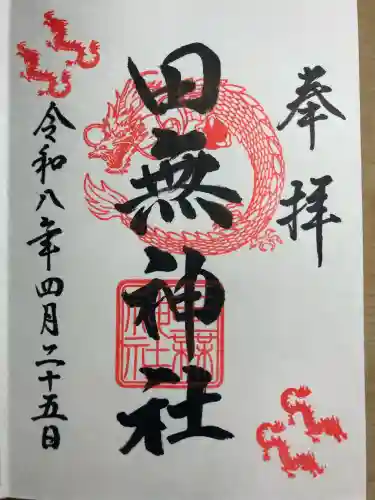 奉拝
田無神社
令和八年四月二十五日